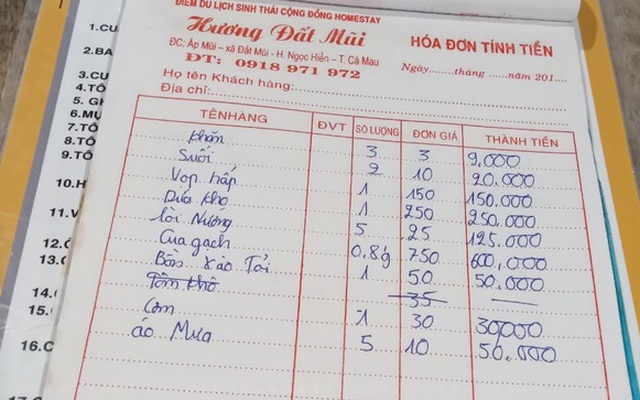 ĐIỂM DU LỊCH SINH THÁI CỘNG ĐỒNG HOMESTAY
Hương Đất Mũi
HÓA ĐƠN TÍNH TIỀN
ĐC: Ấp Mũi – xã Đất Mũi - H. Ngọc Hiển – T. Cà Mau
ĐT: 0918 971 972
Ngày......tháng......năm 201....
Họ tên Khách hàng:
Địa chỉ:
TÊN HÀNG ĐVT SỐ LƯỢNG ĐƠN GIÁ THÀNH TIỀN
Khăn 3 3 9,000
Suối 2 10 20.000
Vọp hấp 1 150 150.000
Dứa kho 1 250 250.000
Lòi Nướng 5 25 125.000
Cua gạch 0.8 750 600,000
Bồn Xào Tỏi 1 50 50.000
Tôm khô 35
Cơm 1 30 30000
áo Mưa 5 10 50.000
1.CU
2.BA
3.CU
4.TÔ
5.GH
6.MỤ
7.TÔ
8.TÔ
9.TÔ
10.H
11.V
12.
13.
14.
15.
16.C
17.